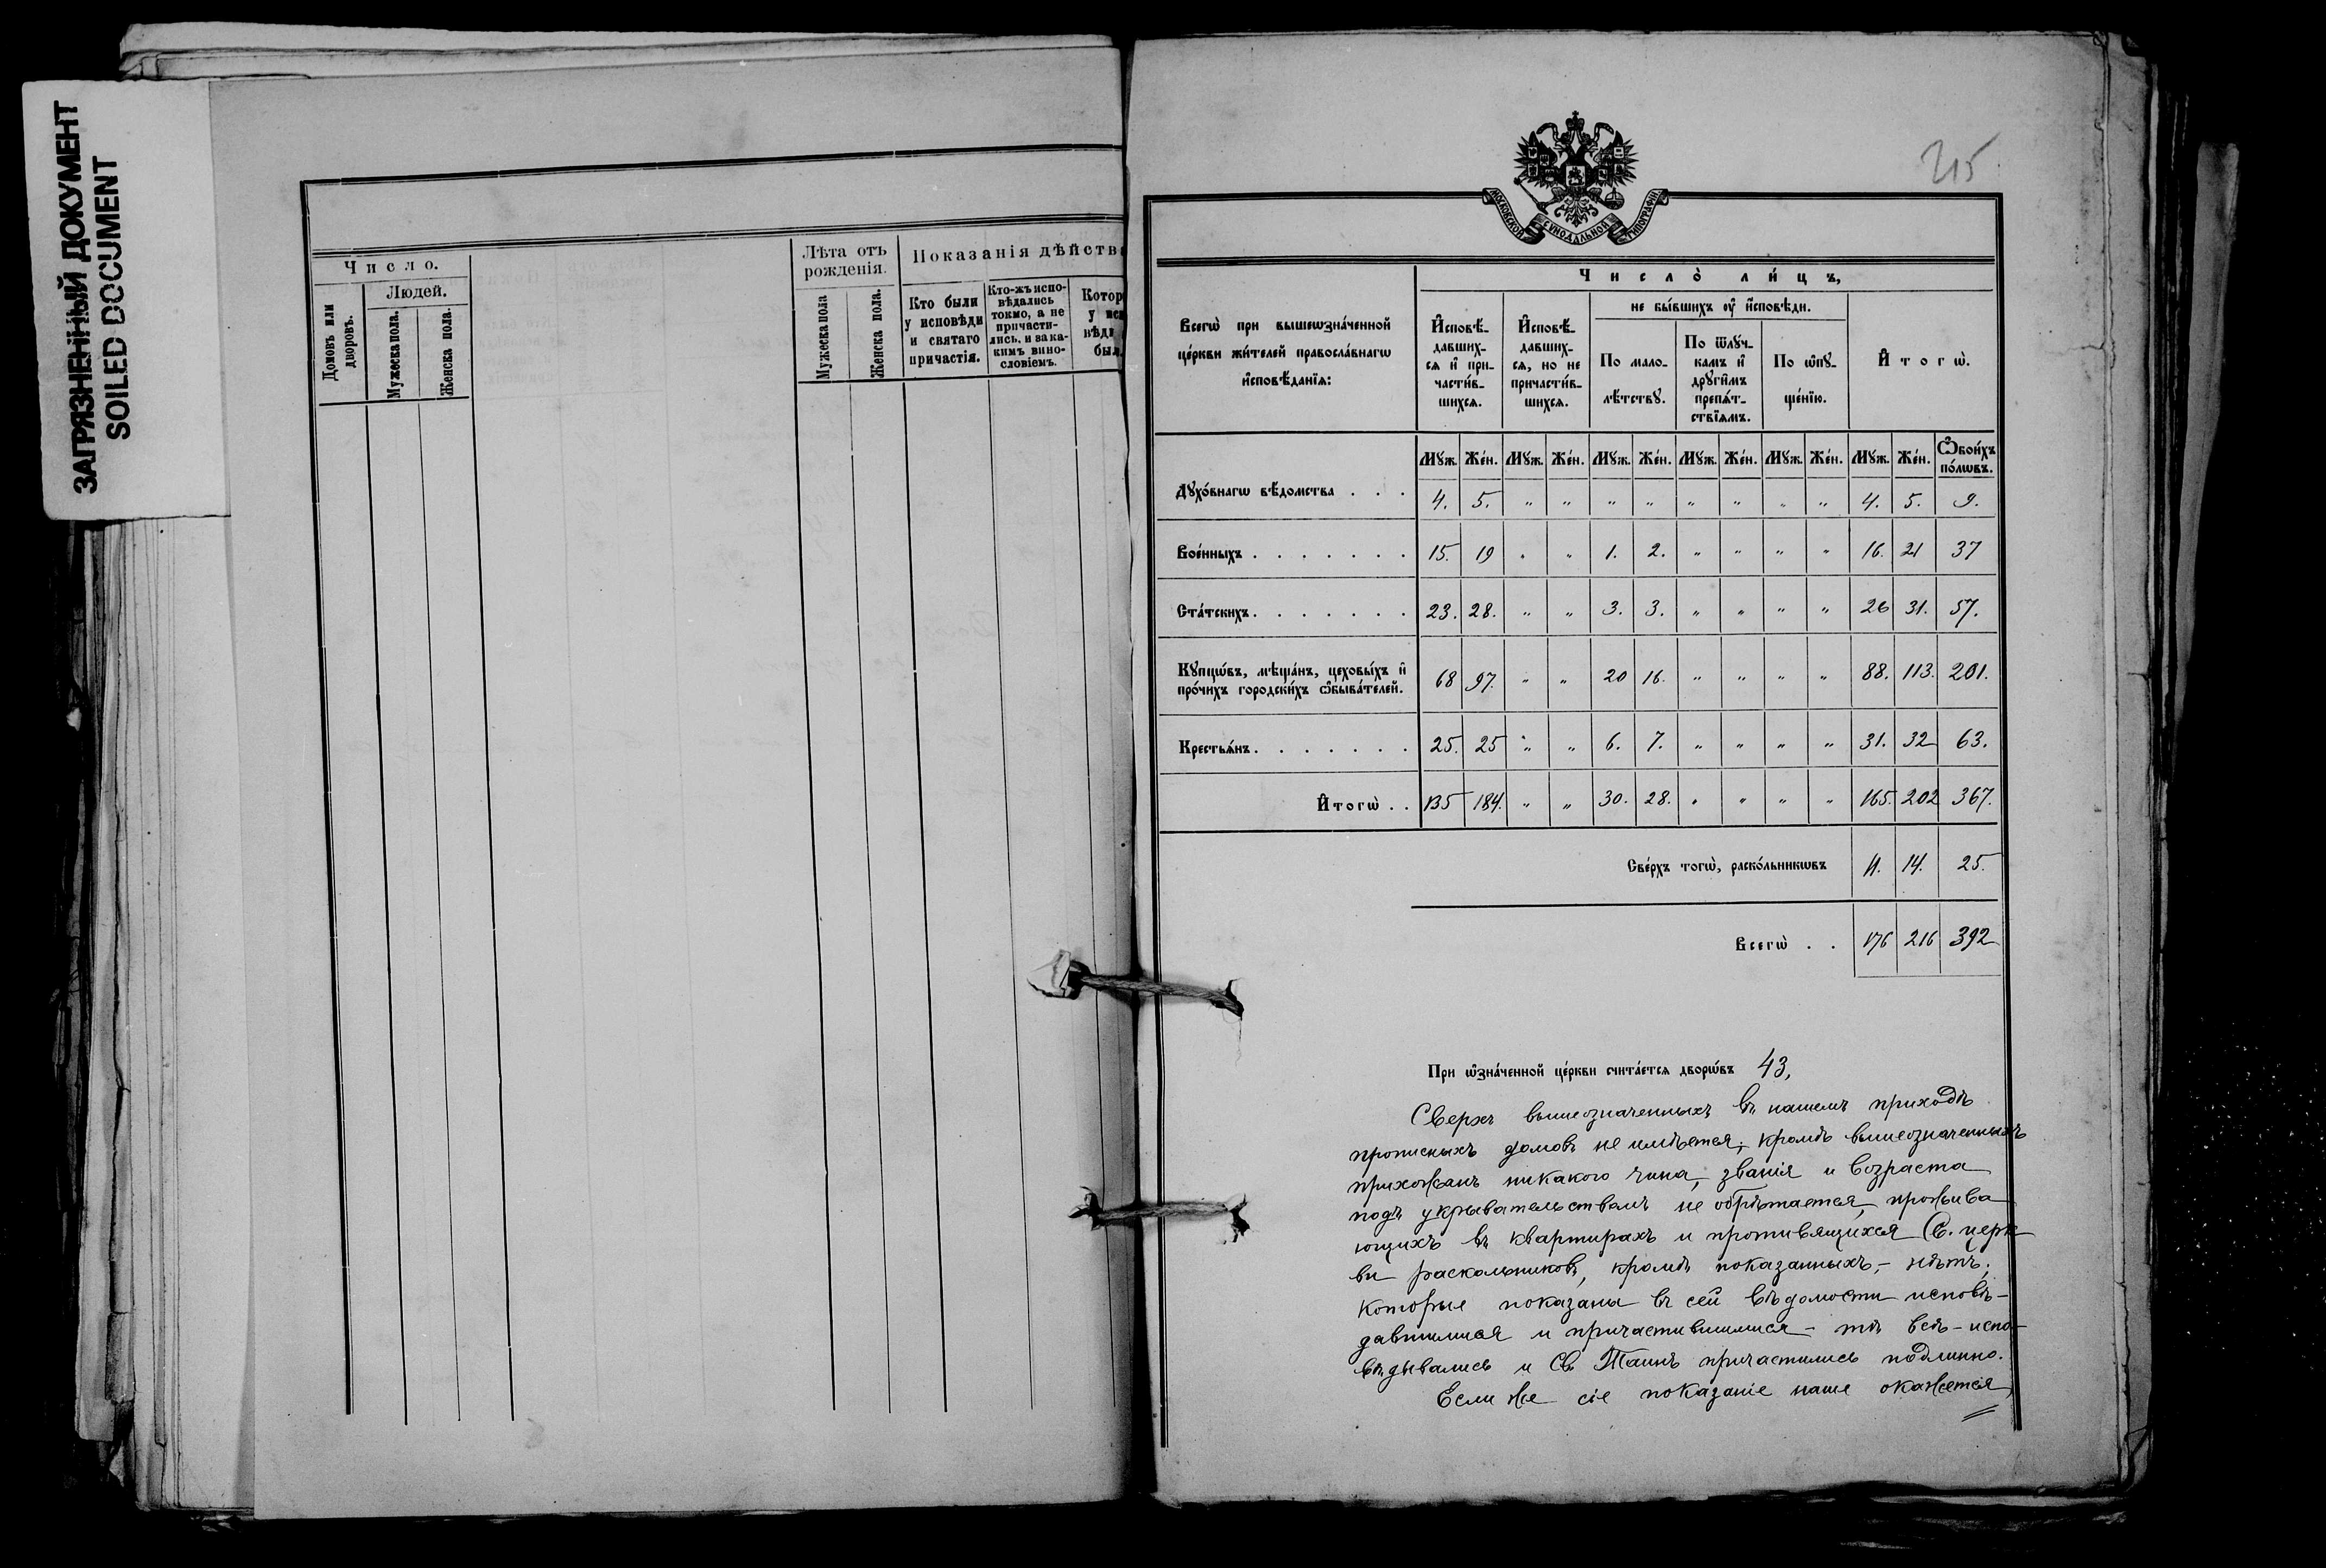 ЗАГРЯЗНЕННЫЙ ДОКУМЕНТ
SOILED DOCUMENT
Число.
Домовъ или дворовъ.
Людей.
Мужеска пола.
Женска пола.
Лѣта отъ рожденія.
Мужеска пола
Женска пола.
Показанія дѣйств
Кто были у исповѣди и святаго причастія.
Кто-жъ испо-
вѣдались
токмо, а не
причасти-
лись, и за ка-
кимъ вино-
словіемъ.
Котор
у ис
вѣди
был
215
МОСКОВСКОЙ СѴНОДАЛЬНОЙ ТИПОГРАФІИ
Всегѡ̀ при вышеѡзна́ченной
це́ркви жи́телей правосла́внагѡ
и҆сповѣ́данїѧ:
Число̀ ли́цъ,
И҆сповѣ́-
давших-
сѧ и҆ при-
части́в-
шихсѧ.
И҆сповѣ́-
давших-
сѧ, но не
причасти́в-
шихсѧ.
не бы́вшихъ ᲂу҆ и҆́сповѣди.
По мало-
лѣ́тствꙋ.
По ѿлꙋч-
камъ и҆
дрꙋги̑мъ
препѧ́т-
ствїѧмъ.
По ѡ҆пꙋ-
ще́нїю.
И҆тогѡ̀.
Мꙋж. Же́н. Мꙋж. Же́н. Мꙋж. Же́н. Мꙋж. Же́н. Мꙋж. Же́н. Мꙋж. Же́н. Ѻ҆бои́хъ по́лѡвъ.
Дꙋхо́внагѡ вѣ́домства . . . 4. 5. " " " " " " " " 4. 5. 9.
Вое́нныхъ . . . . . . . 15. 19 " " 1. 2. " " " " 16. 21 37
Ста́тскихъ . . . . . . . 23. 28. " " 3. 3. " " " " 26 31. 57.
Кꙋпцѡ́въ, мѣща́нъ, цеховы́хъ и҆
про́чихъ городски́хъ ѡ҆быва́телей. 68 97. " " 20 16. " " " " 88. 113. 201.
Крестьѧ́нъ . . . . . . . 25. 25 " " 6. 7. " " " " 31. 32 63.
И҆тогѡ̀ . . 135 184. " " 30. 28. " " " " 165. 202 367.
Све́рхъ тогѡ̀, раско́льникѡвъ 11. 14. 25.
Всегѡ̀ . . 176 216 392
При ѡ҆зна́ченной це́ркви счита́етсѧ дворѡ́въ 43,
Сверхъ вышеозначенныхъ въ нашемъ приходѣ
прописныхъ домовъ не имѣется; кромѣ вышеозначенныхъ
прихожанъ никакого чина, званія и возраста
подъ укрывательствомъ не обрѣтается, прожива
ющихъ въ квартирахъ и противящихся Св. церк
ви раскольниковъ, кромѣ показанныхъ,- нѣтъ;
которые показаны въ сей вѣдомости исповѣ-
давшимися и причастившимися - тѣ всѣ - испо-
вѣдывались и Св. Таинъ причастились подлинно.
Если же сіе показаніе наше окажется,